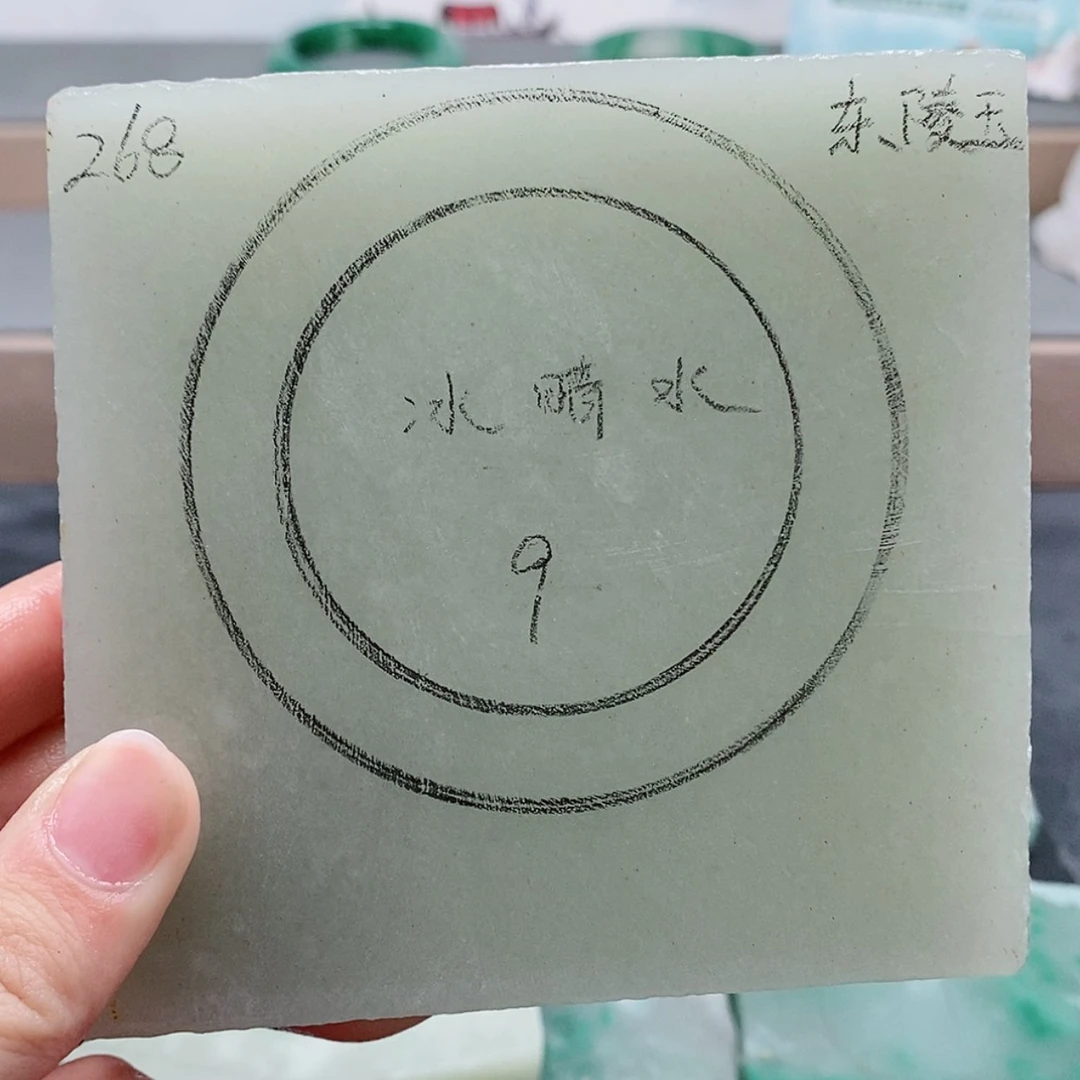 268
东陵玉
冰晴水
9